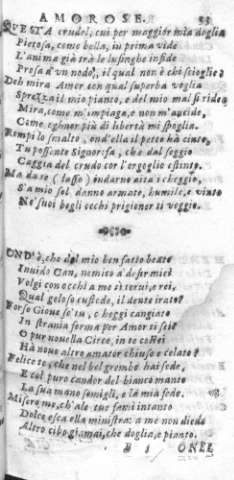 AMOROSE. 53
QVESTA crudel, cui per maggior mia doglia
Pietosa, come bella, in prima vide
L'anima già trà le lusinghe infide
Presa d'vn nodo, il qual non è chi scioglie?
Deh mira Amor con qual superba voglia
Sprezza il mio pianto, e del mio mal si ride:
Mira, come m'impiaga, e non m'ancide,
Come ogn'hor più di libertà mi spoglia.
Rompi lo smalto, ond'ella il petto hà cinto,
Tu possente Signor: fa, che dal seggio
Caggia del crudo cor l'orgoglio estinto.
Ma da te (lasso) indarno aita i cheggio,
S'a mio sol danno armato, humile, e vinto
Ne' suoi begli occhi prigionier ti veggio.
OND'è, che del mio ben fatto beato
Inuido Can, nemico a' desir miei
Volgi con occhi a me sì torui, e rei,
Qual geloso custode, il dente irato?
Forse Gioue se' tu, e hoggi cangiato
In strania forma per Amor ti sei?
O pur nouella Circe, in te colei
Hà nouo altro amator chiuso e celato?
Felice te, che nel bel grembo hai sede,
E col puro candor del bianco manto
La sua mano somigli, e la mia fede.
Misero me, ch'a le tue fami intanto
Dolce esca ella ministra: a me non diede
Altro cibo giamai, che doglia, e pianto.
ONEL